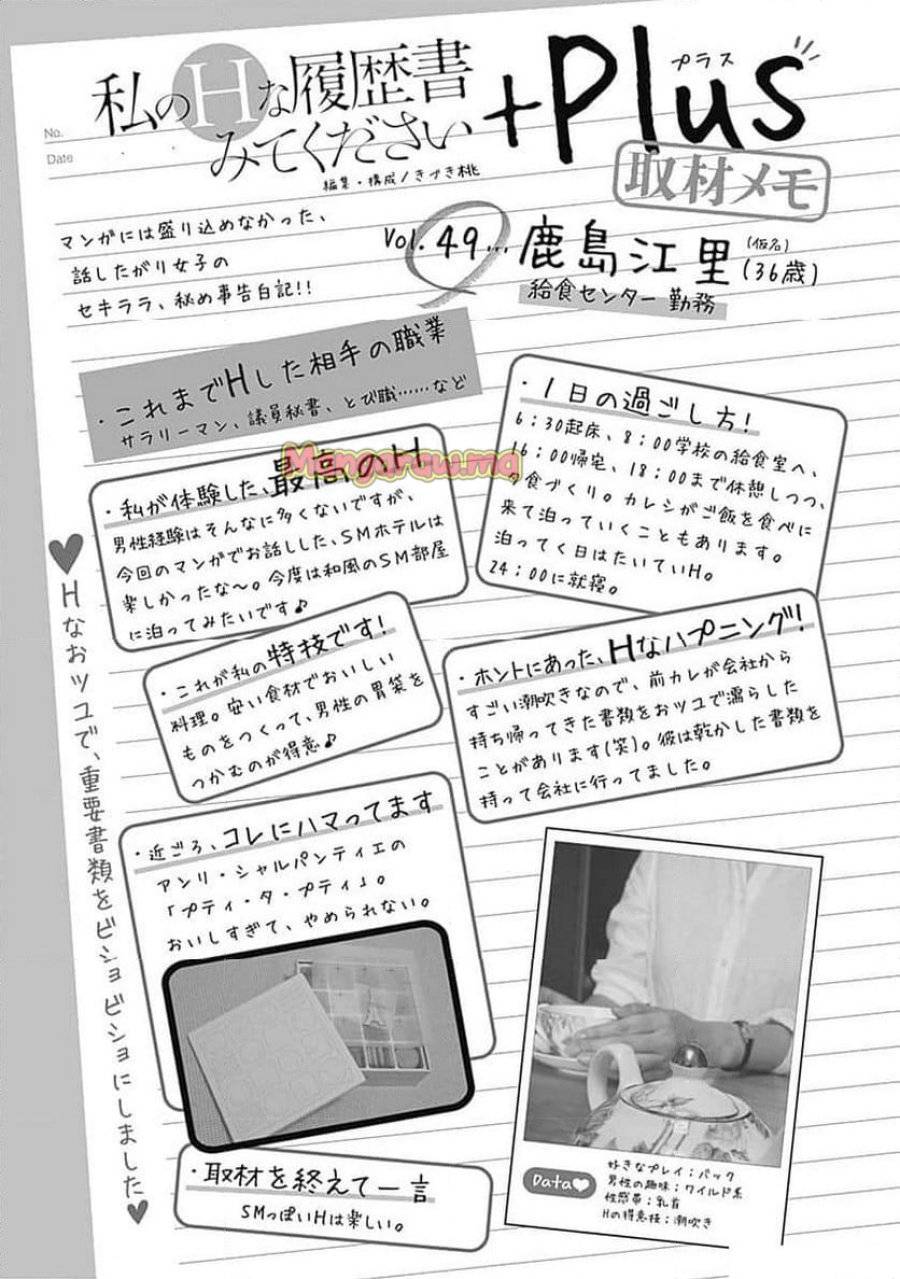 No.
Date
私のHな履歴書
みてください
+Plus
プラス
編集・構成/きづき桃
取材メモ
マンガには盛り込めなかった、
話したがり女子の
セキララ、秘め事告白記!!
Vol. 49…
鹿島江里
(仮名)
(36歳)
給食センター勤務
・これまでHした相手の職業
サラリーマン、議員秘書、とび職……など
Mangaraw.ma
・1日の過ごし方!
6:30起床、8:00学校の給食室へ、
16:00帰宅、18:00まで休憩しつつ、
夕食づくり。カレシがご飯を食べに
来て泊っていくこともあります。
泊ってく日はたいていH。
24:00に就寝。
・私が体験した、最高のH
男性経験はそんなに多くないですが、
今回のマンガでお話しした、SMホテルは
楽しかったな～。今度は和風のSM部屋
に泊ってみたいです♪
・これが私の特技です!
料理。安い食材でおいしい
ものをつくって、男性の胃袋を
つかむのが得意♪
・ホントにあった、Hなハプニング!
すごい潮吹きなので、前カレが会社から
持ち帰ってきた書類をおツユで濡らした
ことがあります(笑)。彼は乾かした書類を
持って会社に行ってました。
・近ごろ、コレにハマってます
アンリ・シャルパンティエの
「プティ・タ・プティ」。
おいしすぎて、やめられない。
♥Hなおツユで、重要書類をビショビショにしました♥
・取材を終えて一言
SMっぽいHは楽しい。
Data♥
好きなプレイ:バック
男性の趣味:ワイルド系
性感帯:乳首
Hの得意技:潮吹き